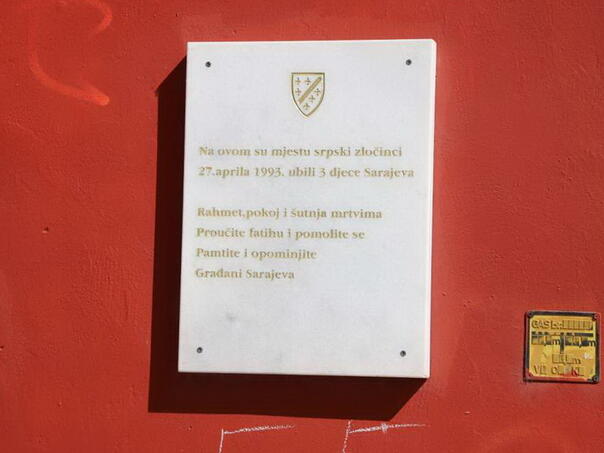 Na ovom su mjestu srpski zločinci
27.aprila 1993. ubili 3 djece Sarajeva
Rahmet,pokoj i šutnja mrtvima
Proučite fatihu i pomolite se
Pamtite i opominjite
Građani Sarajeva
GAS